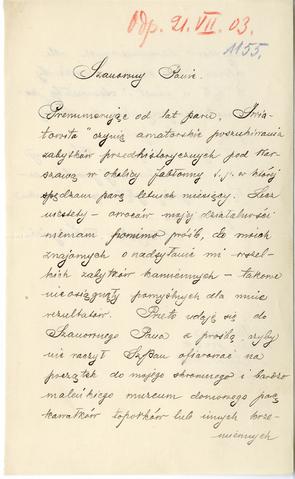 Odp. 21. VII. 03.
1155.
Szanowny Panie.
Prenumerując od lat paru „Świa-
towita" czynię amatorskie poszukiwania
zabytków przedhistorycznych pod War-
szawą w okolicy Jabłonny i. j. w której
spędzam parę letnich miesięcy. Lecz
niestety – owoców mojej działalności
niemam pomimo próśb, do moich
znajomych o nadsyłanie mi wszel-
kich zabytków kamiennych – takowe
nieosiągnęły pomyślnych dla mnie
rezultatów. Przeto udaję się do
Szanownego Pana z prośbą czyby
nie raczył SzPan ofiarować na
początek do mojego skromnego i bardzo
maleńkiego muzeum domowego parę
kawałków toporków lub innych krze-
miennych